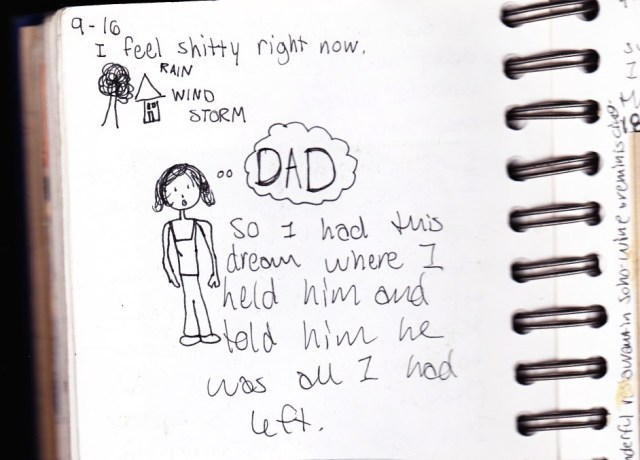 9-16
I feel shitty right now.
RAIN
WIND
STORM
DAD
So I had this
dream where I
held him and
told him he
was all I had
left.
in Soho wine